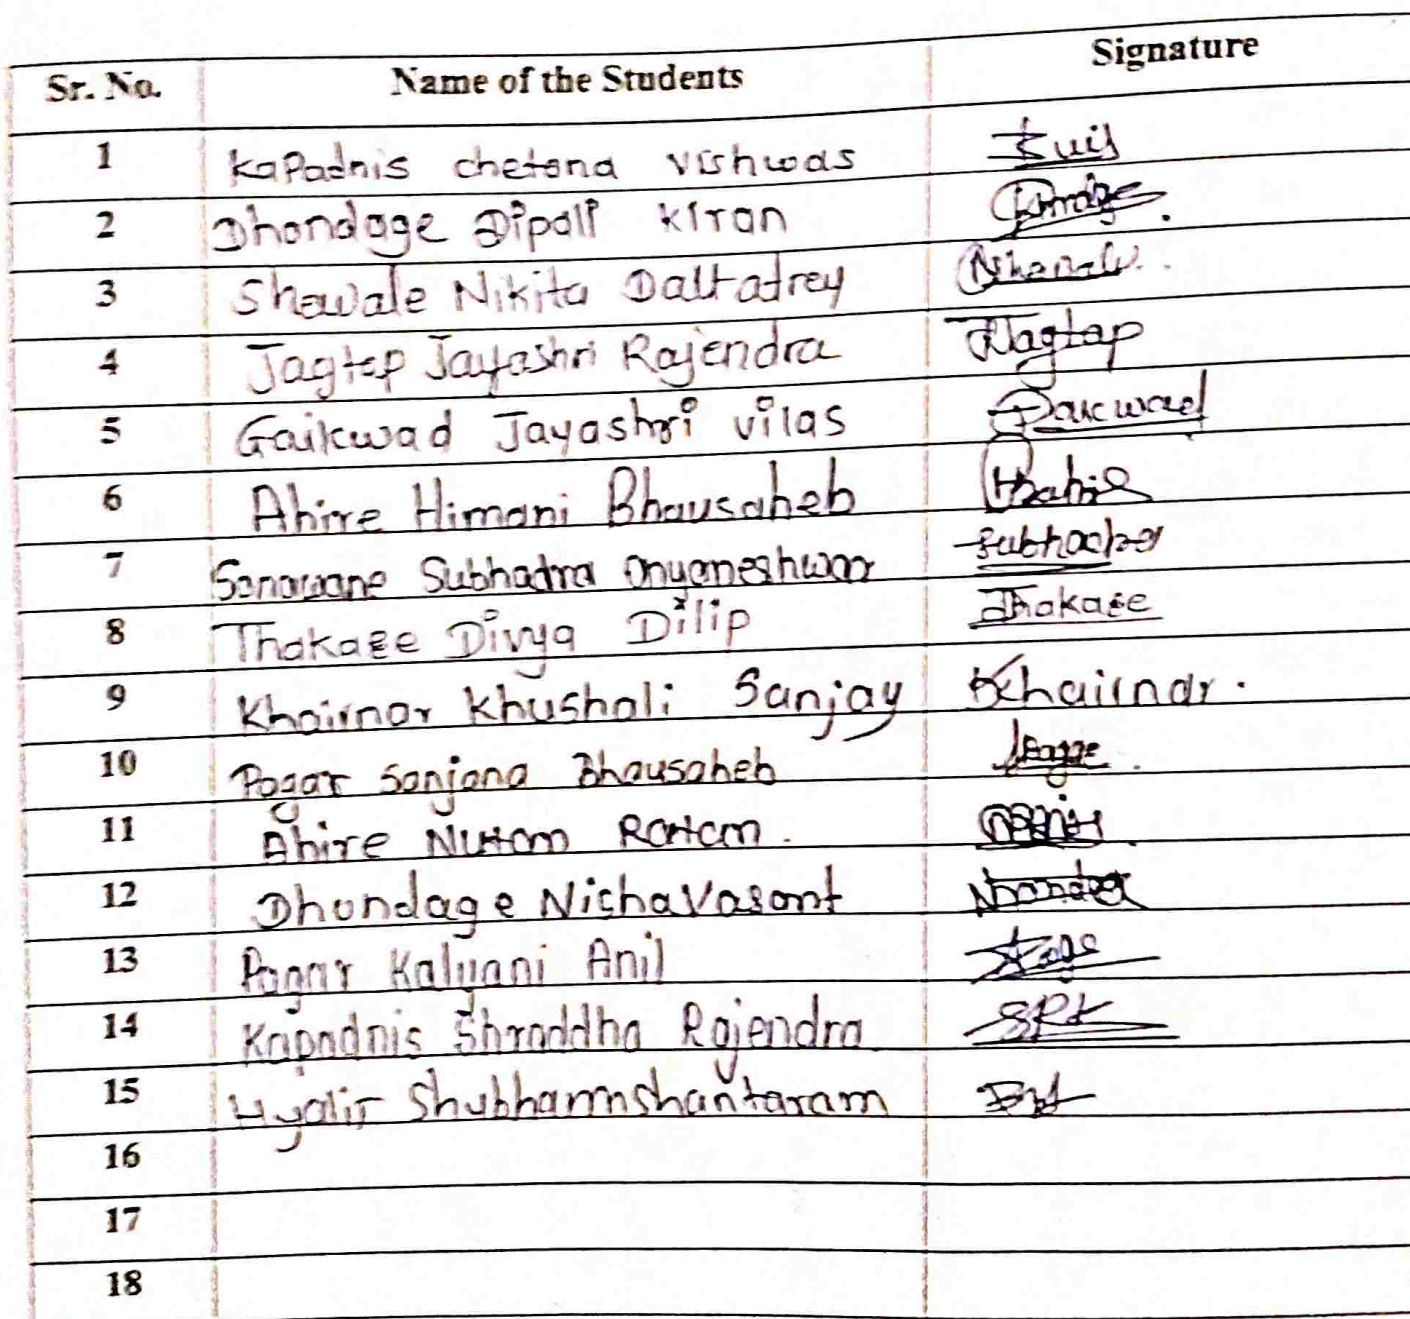 Sr. No. Name of the Students Signature
1 Kapadnis chetana vishwas
2 Dhondage Dipali Kiran
3 Shewale Nikita Dattatrey
4 Jagtap Jayashri Rajendra Jagtap
5 Gaikwad Jayashri vilas Gaikwad
6 Ahire Himani Bhausaheb
7 Sonawane Subhadra Dnyaneshwar
8 Thakare Divya Dilip Thakare
9 Khairnar Khushali Sanjay Khairnar.
10 Pagar Sanjana Bhausaheb
11 Ahire Nutan Ratan.
12 Dhondage Nisha Vasant
13 Pagar Kalyani Anil
14 Kapadnis Shraddha Rajendra SRK
15 Hyalij Shubham shantaram
16
17
18